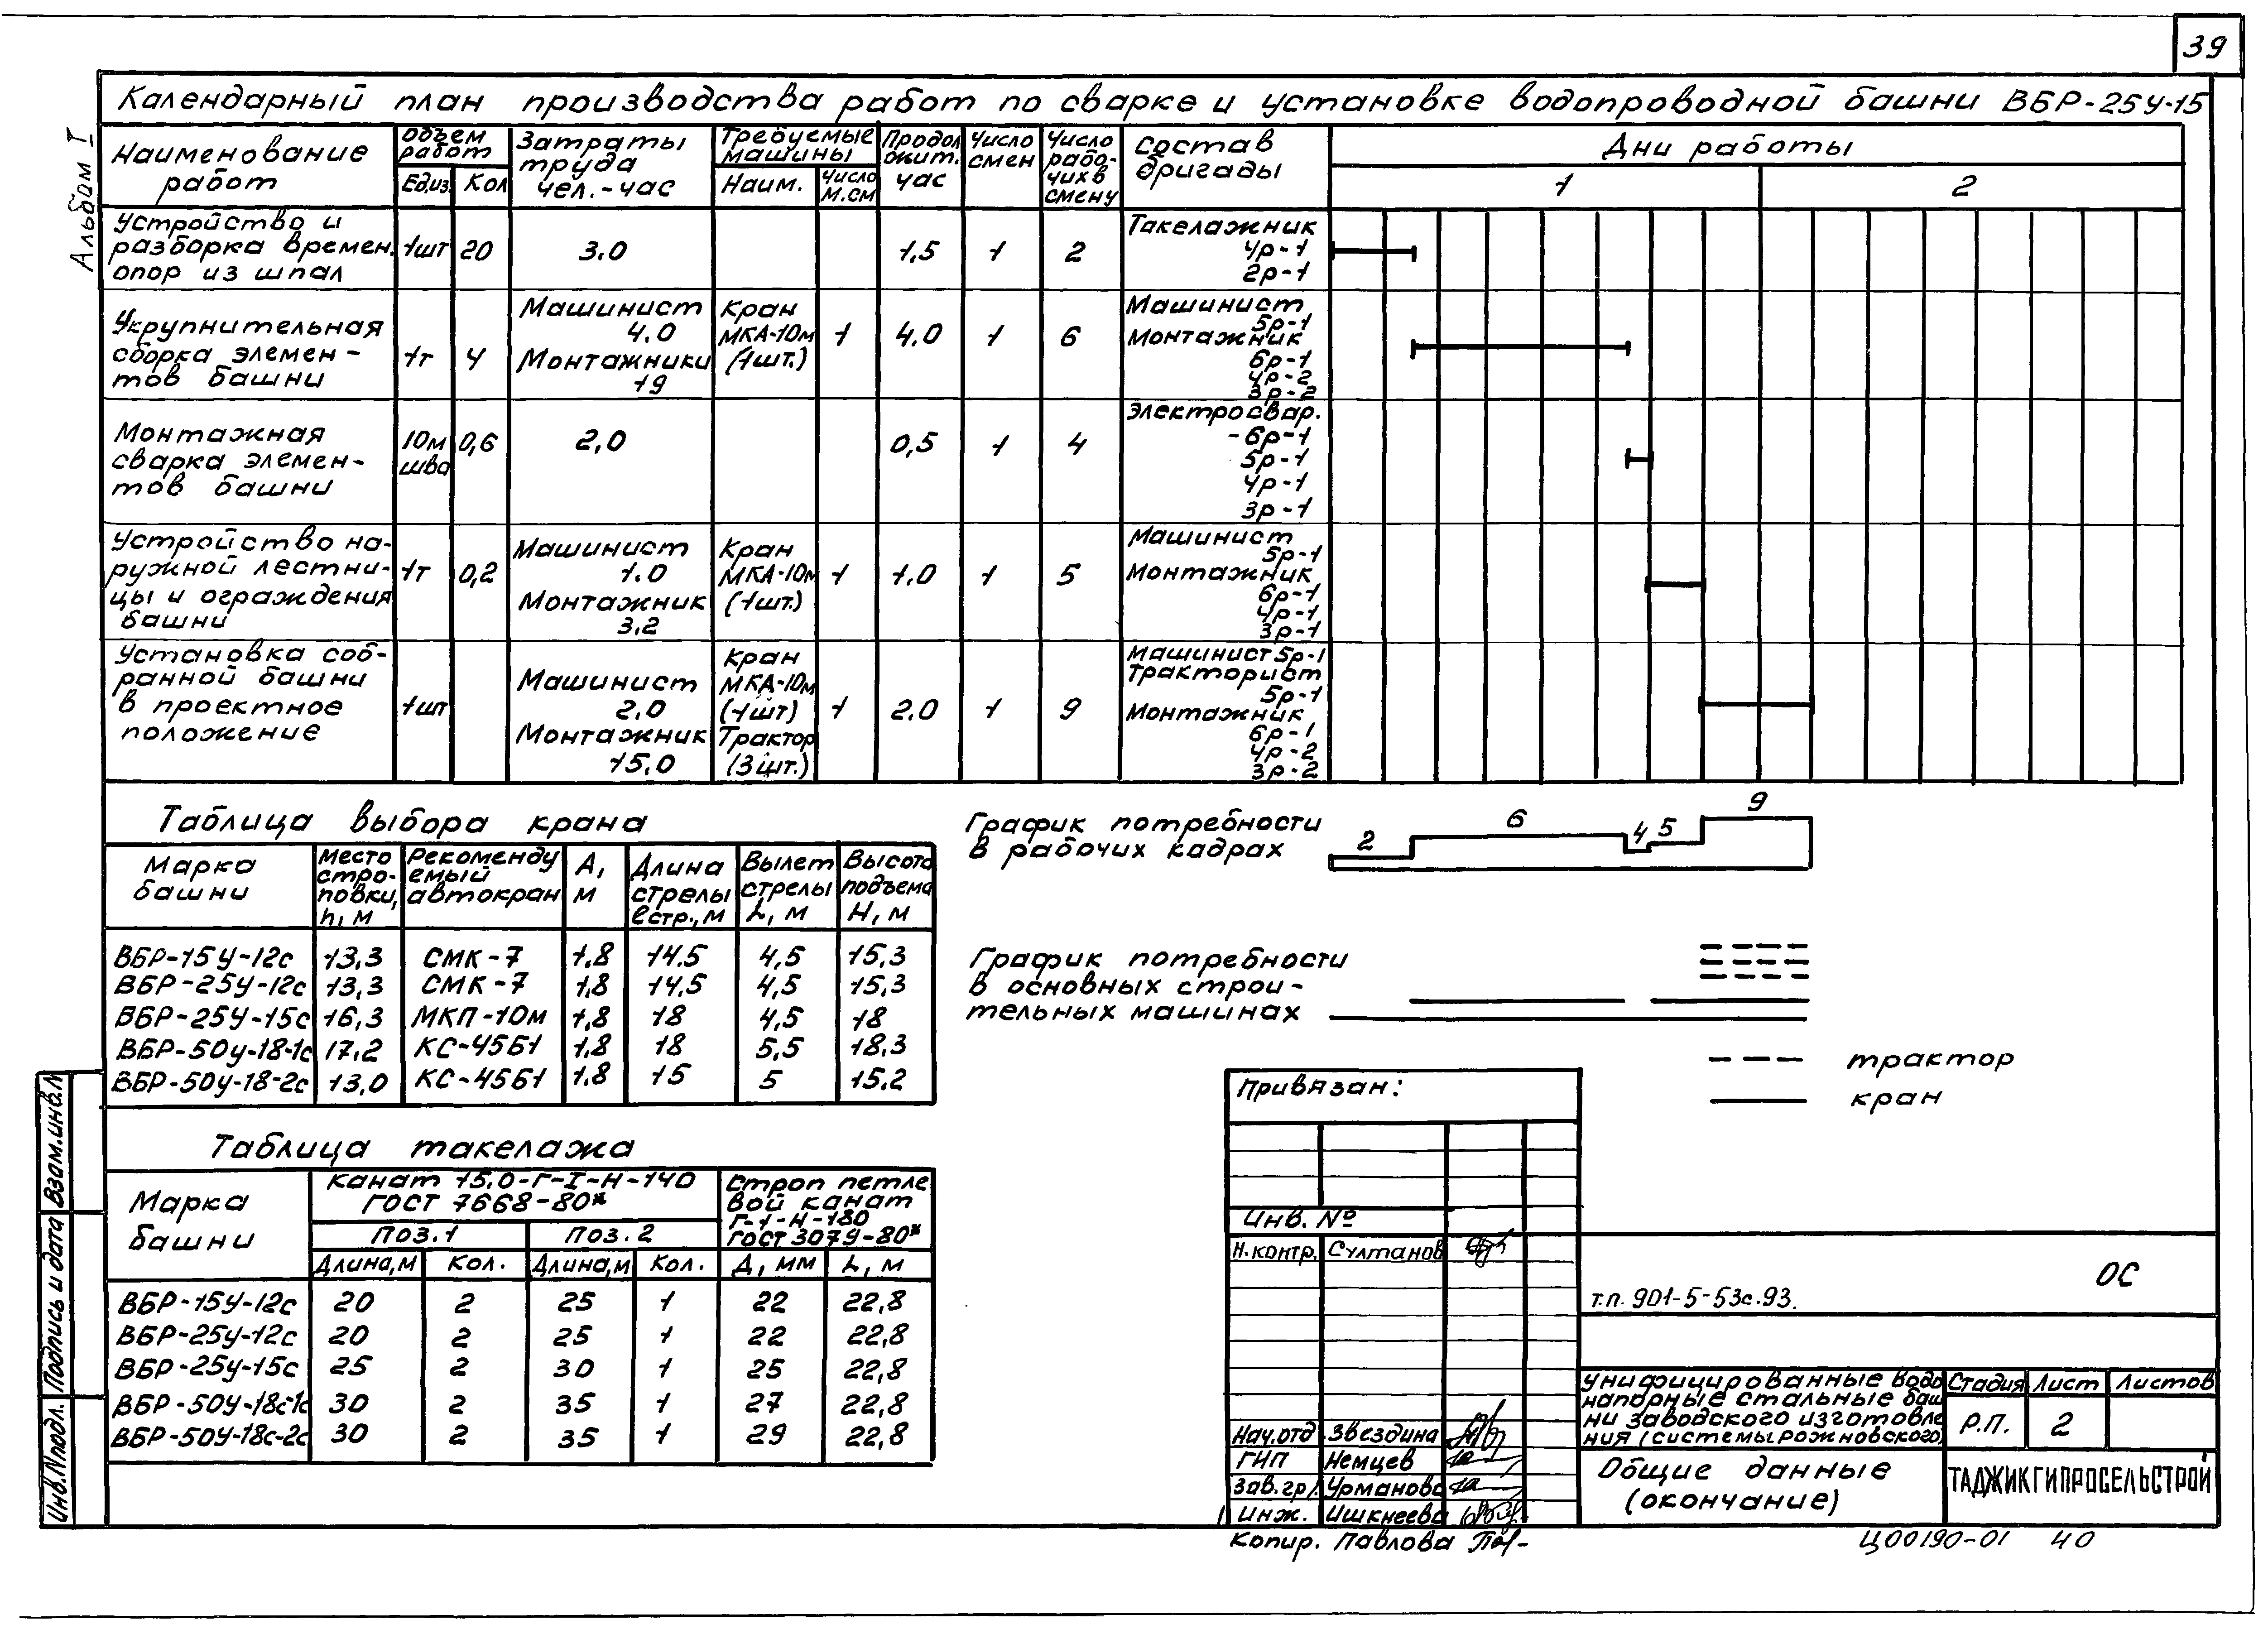 39
Альбом I
Календарный план производства работ по сварке и установке водопроводной башни ВБР-25У-15
Наименование работ
Объем работ
Ед.из.
Кол
Затраты труда чел.-час
Требуемые машины
Наим.
Число м.см
Продолжит. час
Число смен
Число рабочих в смену
Состав бригады
Дни работы
1
2
Устройство и
разборка времен.
опор из шпал
1шт
20
3.0
1,5
1
2
Такелажник
4р-1
2р-1
Укрупнительная
сборка элемен-
тов башни
1т
4
Машинист
4.0
Монтажники
19
Кран
МКА-10м
(1шт.)
1
4.0
1
6
Машинист
5р-1
Монтажник
6р-1
4р-2
3р-2
Монтажная
сварка элемен-
тов башни
10м
шва
0,6
2,0
0,5
1
4
Электросвар.
-6р-1
5р-1
4р-1
3р-1
Устройство на-
ружной лестни-
цы и ограждения
башни
1т
0,2
Машинист
1.0
Монтажник
3,2
Кран
МКА-10м
(1шт.)
1
1.0
1
5
Машинист
5р-1
Монтажник
6р-1
4р-1
3р-1
Установка соб-
ранной башни
в проектное
положение
1шт
Машинист
2.0
Монтажник
15,0
Кран
МКА-10м
(1шт)
Трактор
(3шт.)
1
2.0
1
9
Машинист 5р-1
Тракторист
5р-1
Монтажник
6р-1
4р-2
3р-2
Таблица выбора крана
Марка башни
Место строповки, h, м
Рекомендуемый автокран
А, м
Длина стрелы ℓстр., м
Вылет стрелы L, м
Высота подъема Н, м
ВБР-15У-12с 13,3 СМК-7 1,8 14.5 4,5 15,3
ВБР-25У-12с 13,3 СМК-7 1,8 14,5 4,5 15,3
ВБР-25У-15с 16,3 МКП-10м 1,8 18 4,5 18
ВБР-50у-18-1с 17,2 КС-4561 1,8 18 5,5 18,3
ВБР-50у-18-2с 13,0 КС-4561 1,8 15 5 15.2
График потребности
в рабочих кадрах
2
6
4
5
9
График потребности
в основных строи-
тельных машинах
трактор
кран
Таблица такелажа
Марка башни
Канат 15.0-Г-I-Н-140
ГОСТ 7668-80*
Строп петле
вой канат
Г-1-Н-180
ГОСТ 3079-80*
Поз.1
Поз. 2
Длина,м
Кол.
Длина,м
Кол.
Д, мм
L, м
ВБР-15У-12с 20 2 25 1 22 22,8
ВБР-25у-12с 20 2 25 1 22 22,8
ВБР-25у-15с 25 2 30 1 25 22,8
ВБР-50У-18с-1с 30 2 35 1 27 22,8
ВБР-50У-18с-2с 30 2 35 1 29 22,8
Привязан:
Инв. №
Н.контр. Султанов
Нач.отд Звездина
ГИП Немцев
Зав.гр. Урманова
Инж. Ишкнеева
Копир. Павлова
т.п. 901-5-53с.93.
ОС
Унифицированные водо
напорные стальные баш
ни заводского изготовле
ния (системы Рожновского)
Стадия
Лист
Листов
Р.П.
2
Общие данные
(окончание)
ТАДЖИКГИПРОСЕЛЬСТРОЙ
Ц00190-01 40
Взам.инв.N
Подпись и дата
Инв.Nподл.